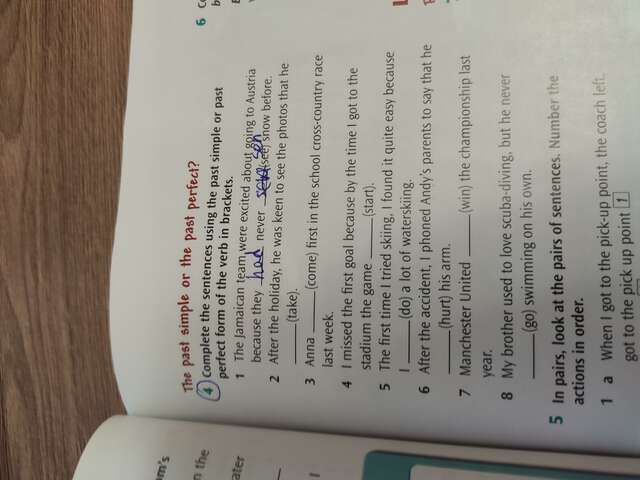 The past simple or the past perfect?
4 Complete the sentences using the past simple or past
perfect form of the verb in brackets.
1 The Jamaican team were excited about going to Austria
because they had never (see) snow before.
2 After the holiday, he was keen to see the photos that he
(take).
3 Anna (come) first in the school cross-country race
last week.
4 I missed the first goal because by the time I got to the
stadium the game (start).
5 The first time I tried skiing, I found it quite easy because
I (do) a lot of waterskiing.
6 After the accident, I phoned Andy's parents to say that he
(hurt) his arm.
7 Manchester United (win) the championship last
year.
8 My brother used to love scuba-diving, but he never
(go) swimming on his own.
5 In pairs, look at the pairs of sentences. Number the
actions in order.
1 a When I got to the pick-up point, the coach left.
got to the pick up point 1
6
n the
ater